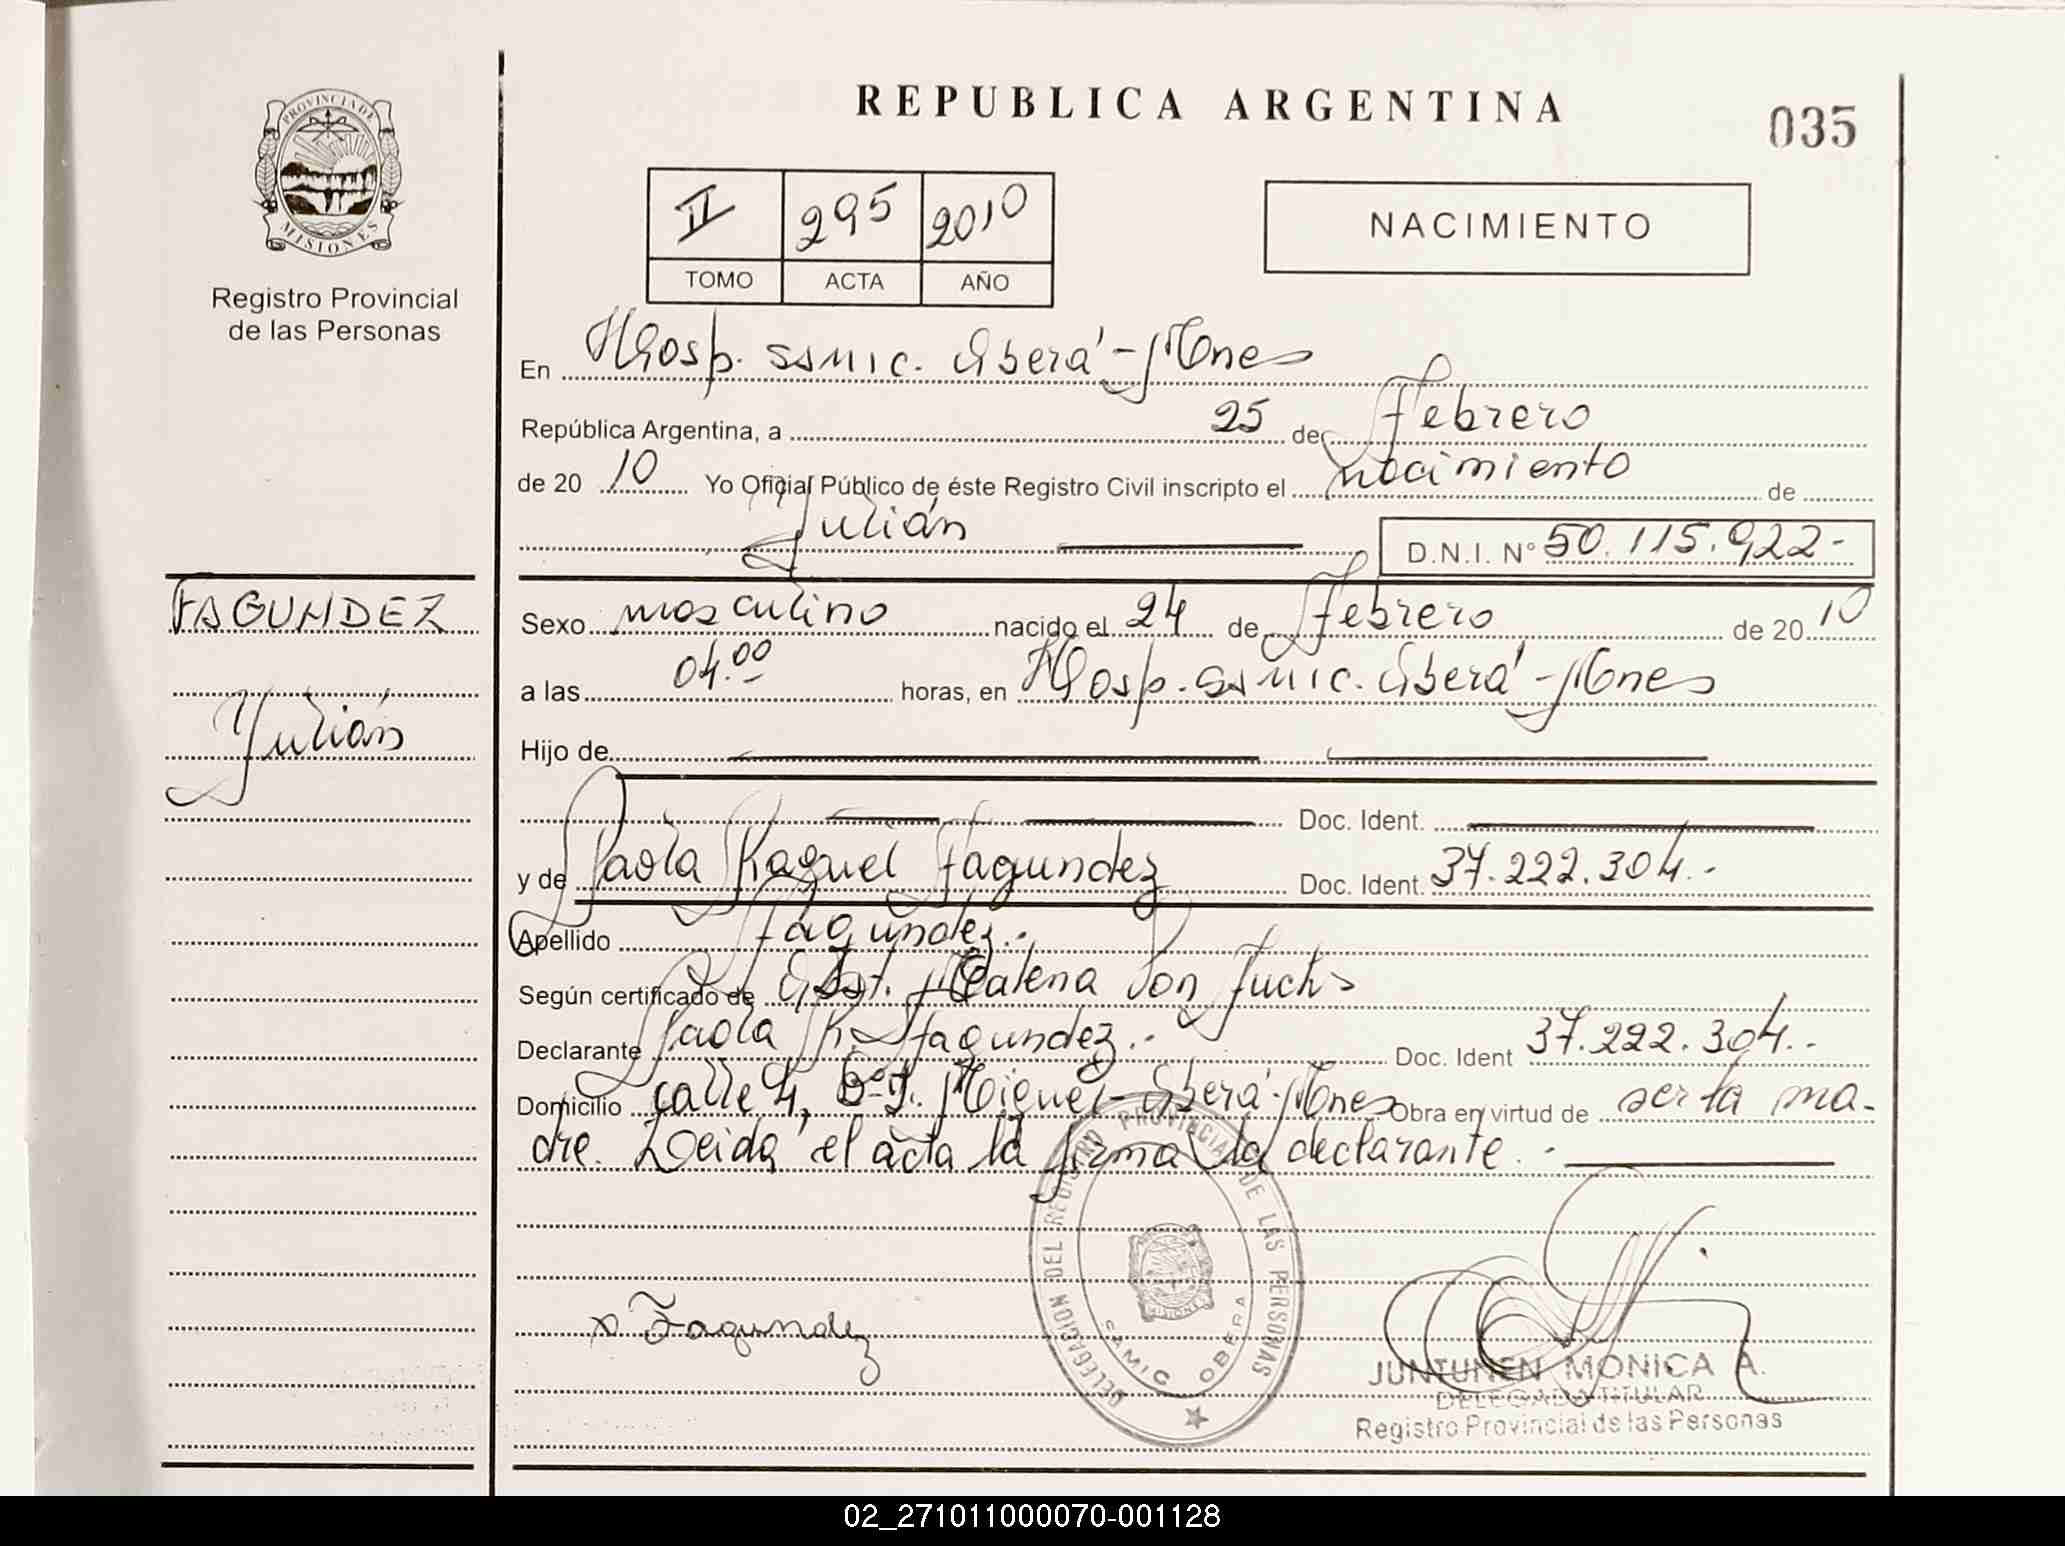 REPUBLICA ARGENTINA
035
PROVINCIA DE
MISIONES
Registro Provincial
de las Personas
II 295 2010
TOMO ACTA AÑO
NACIMIENTO
En Hosp. SAMIC. Oberá - Mnes
República Argentina, a 25 de Febrero
de 20 10 Yo Oficial Público de éste Registro Civil inscripto el nacimiento de
Julián
D.N.I. N° 50.115.922-
FAGUNDEZ
Julián
Sexo masculino nacido el 24 de Febrero de 20 10
a las 04.00 horas, en Hosp. SAMIC. Oberá - Mnes
Hijo de
Doc. Ident.
y de Paola Raquel Fagundez Doc. Ident. 37.222.304.-
Apellido Fagundez.-
Según certificado de Obst. Malena Von Fuchs
Declarante Paola R. Fagundez.- Doc. Ident 37.222.304.-
Domicilio calle 4, B° S. Miguel - Oberá - Mnes Obra en virtud de ser la ma-
dre. Leida el acta la firma la declarante.-
DELEGACION DEL REGISTRO PROVINCIAL DE LAS PERSONAS
MISIONES
SAMIC OBERA
x Fagundez
JUNTUNEN MONICA A.
DELEGADA TITULAR
Registro Provincial de las Personas
02_271011000070-001128